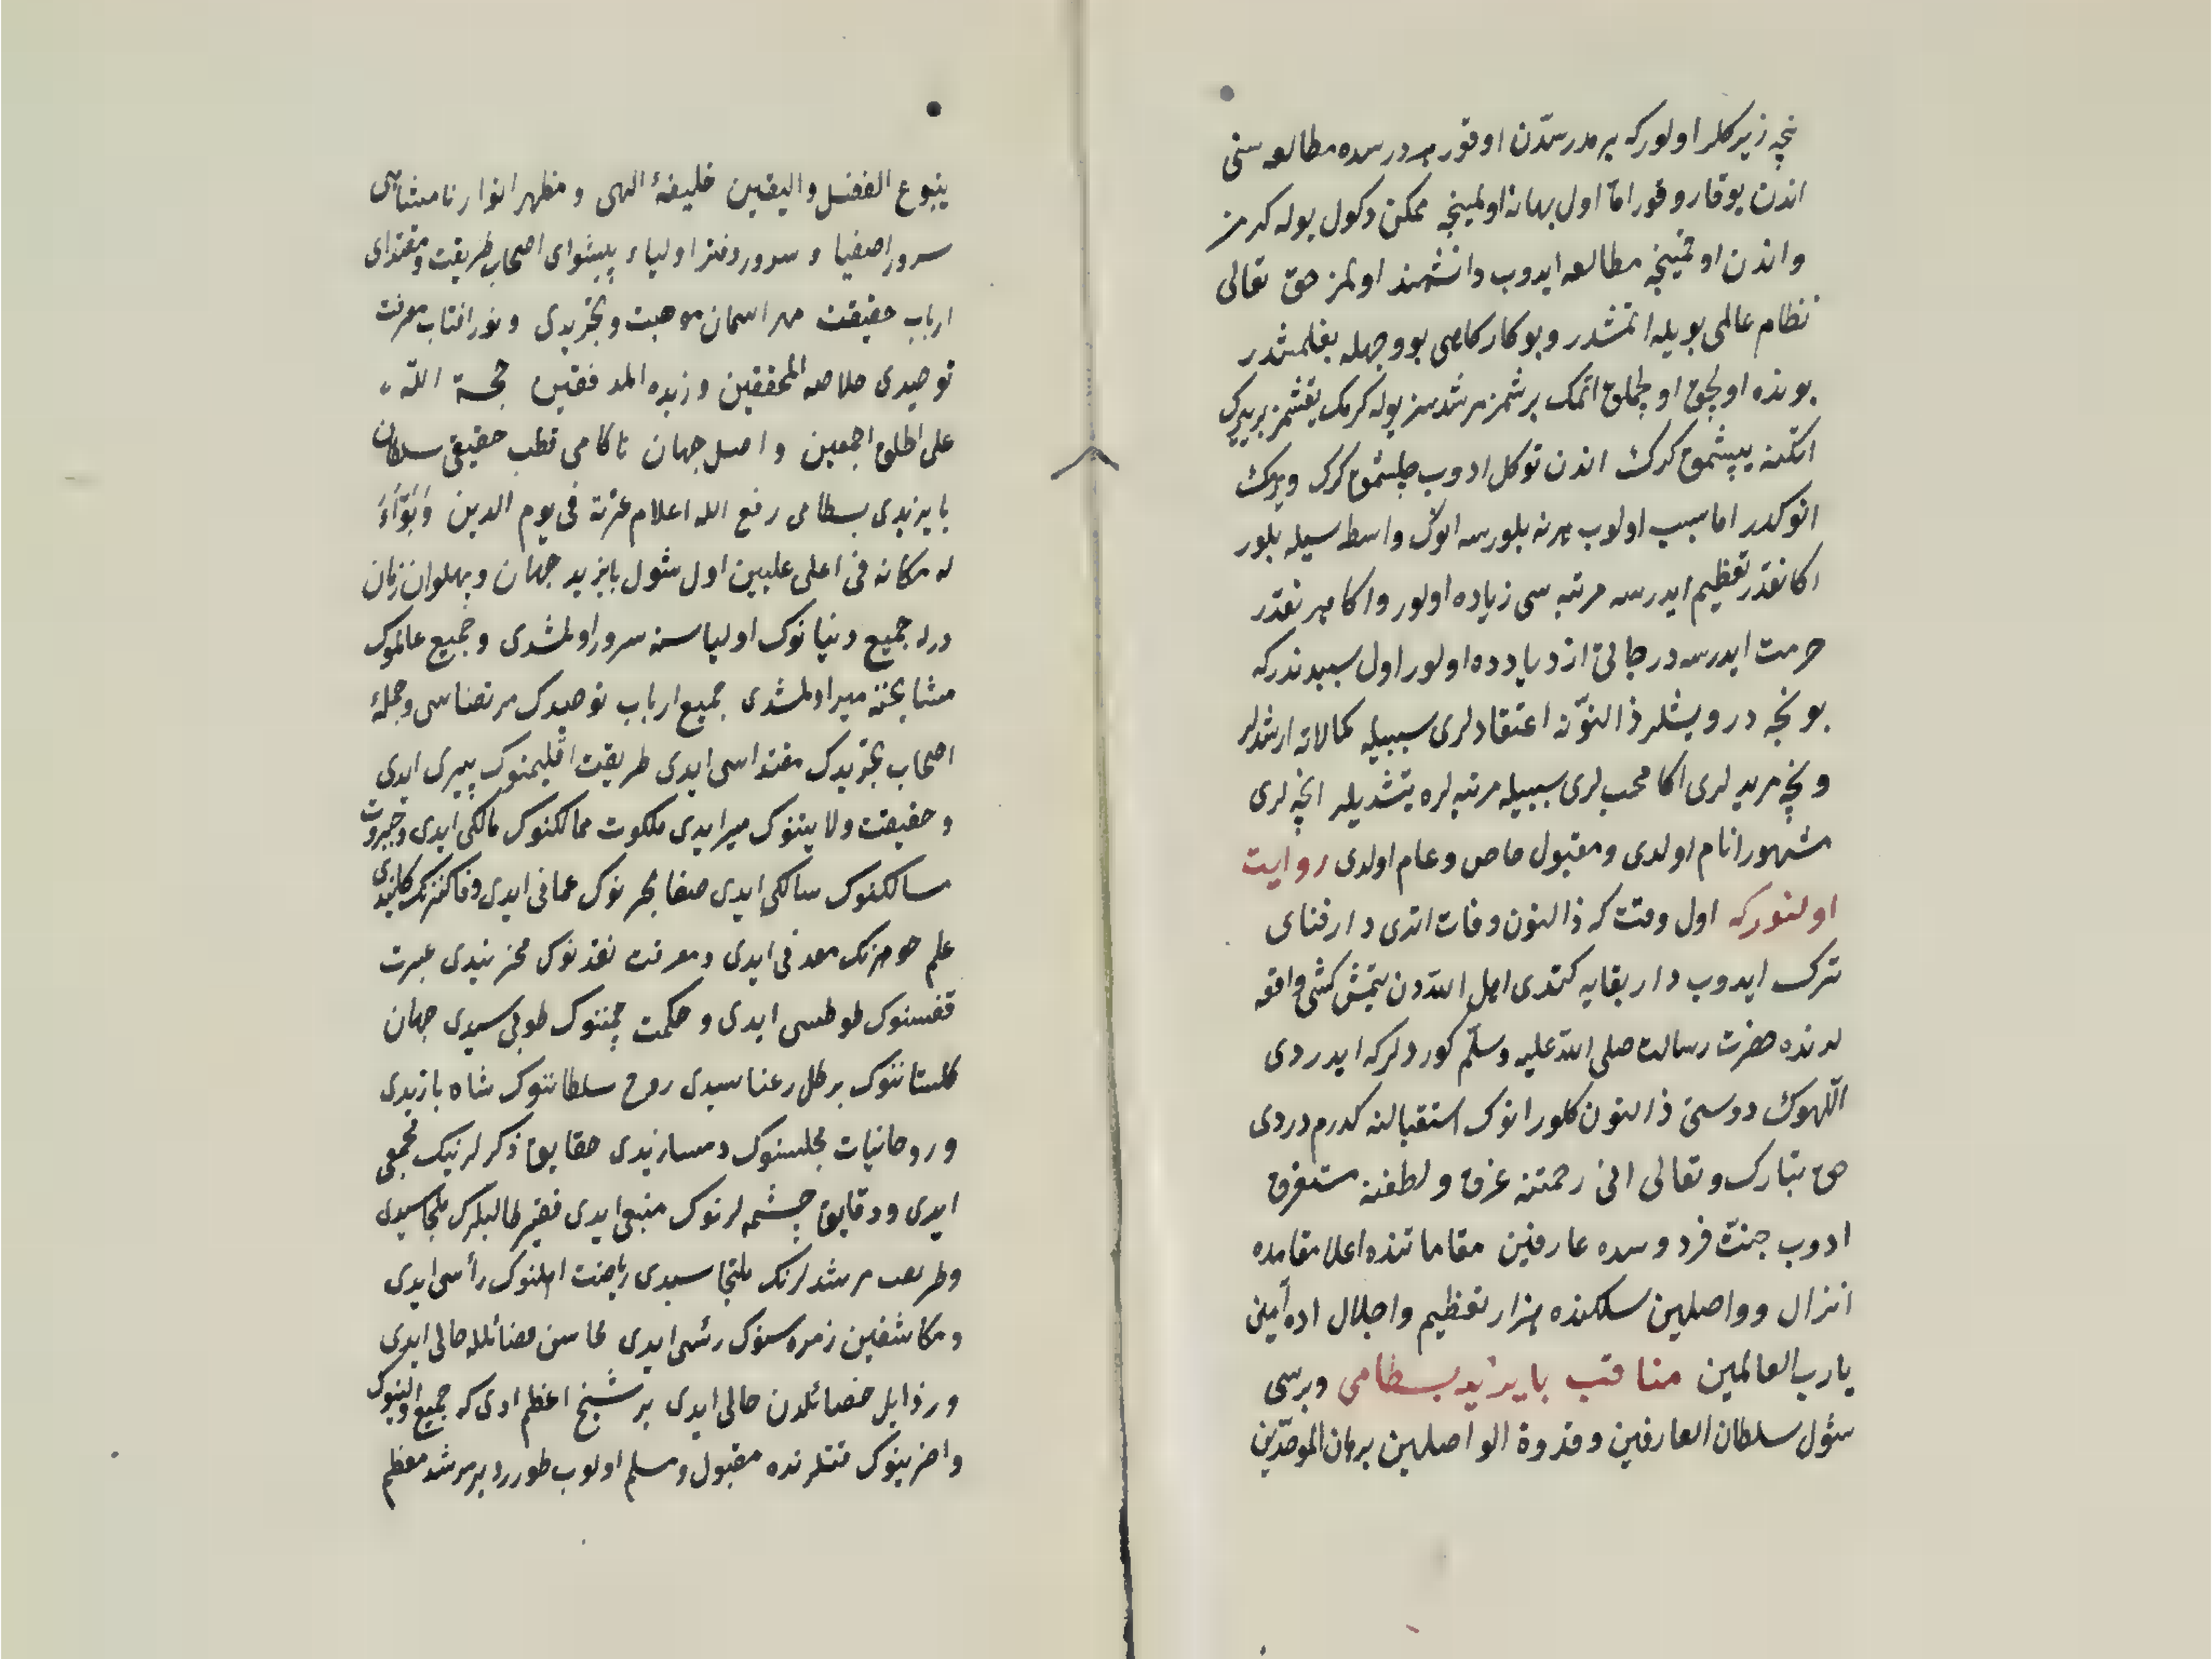 نیچه زیرکلر اولور که بر مدرسدن اوقور بر درسده مطالعه سنی
اندن یوقارو قور اما اول بهانه اولمینجه ممکن دکول یوله کرمز
واندن اوقمینجه مطالعه ایدوب دانشمند اولمز حق تعالی
نظام عالمی بویله اتمشدر و بو کارکاهی بو وجهله بغلمشدر
بونده اولجق
اتکنه یپشمق کرک اندن توکل ادوب چلشمق کرک ویرمک
انوکدر اما سبب اولوب هر نه بلورسه انوک واسطه سیله بلور
اکا نقدر تعظیم ایدرسه مرتبه سی زیاده اولور واکا هر نقدر
حرمت ایدرسه درجاتی ازدیادده اولور اول سببدندر که
بو نچه درویشلر ذا النونه اعتقادلری سببیله کمالاته ارشدلر
و نچه مریدلری اکا محب لری سببیله مرتبه لره یتشدیلر انچه لری
مشهور انام اولدی و مقبول خاص و عام اولدی روایت
اولنور که اول وقت که ذا النون وفات اتدی دار فنای
ترک ایدوب دار بقایه کتدی اهل اللهدن یتمش کشی واقعه
لرنده حضرت رسالت صلی الله علیه وسلم کوردلر که ایدردی
اللهوک دوستی ذا النون کلور انوک استقبالنه کلدم دردی
حق تبارک و تعالی انی رحمتنه غرق و لطفنه مستغرق
ادوب جنت فردوسده عارفین مقاماتنده اعلا مقامده
انزال و واصلین سلکنده هزار تعظیم واجلال اده آمین
یارب العالمین مناقب بایزید بسطامی وبرسی
شول سلطان العارفین وقدوة الواصلین برهان الموحدین
ینبوع الفضل والیقین خلیفهٔ الهی و مظهر انوار نامتناهی
سرور اصفیا و سرور دفتر اولیاء پیشوای اصحاب طریقت و مقتدای
ارباب حقیقت مهر اسمان موهبت و تجریدی و نور افتاب معرفت
توحیدی خلاصه المحققین و زبده المدققین حجة الله
علی الخلق اجمعین واصل جهان ناکامی قطب حقیقی سلطان
بایزیدی بسطامی رفع الله اعلام عزته فی یوم الدین وبواء
له مکانه فی اعلی علیین اول شول بایزید جهان و پهلوان زمان
درلر جمیع دنیانوک اولیاسنه سرور اولمشدی و جمیع عالموک
مشایخنه میر اولمشدی جمیع ارباب توحیدک مرتضاسی و جملهٔ
اصحاب تجریدک مقتداسی ایدی طریقت اقلیمنوک پیری ایدی
و حقیقت ولایتنوک میر ایدی ملکوت ممالکنوک مالکی ایدی و جبروت
مسالکنوک سالکی ایدی صفا بحرنوک عمانی ایدی
علم جوهرنک معدنی ایدی و معرفت نقدنوک مخزنیدی عبرت
قفسنوک طوطیسی ایدی و حکمت چمننوک طوبی سیدی جهان
کلستاننوک بر کل رعناسیدی روح سلطاننوک شاه بازیدی
و روحانیات مجلسنوک دمسازیدی حقایق ذکرلرنیک مجمعی
ایدی و دقایق چشمه لرنوک منبعی ایدی فقیر طالبلرک ملجاسیدی
وطریقت مرشدلرنک ملتجاسیدی ریاضت اهلنوک رأسی ایدی
و مکاشفین زمره سنوک رئسی ایدی محاسن فضائلله حالی ایدی
و رذایل خصائلدن خالی ایدی بر شیخ اعظم ادی که جمیع اولینوک
واخرینوک قتلرنده مقبول و مسلم اولوب طورر دبر مرشد معظم